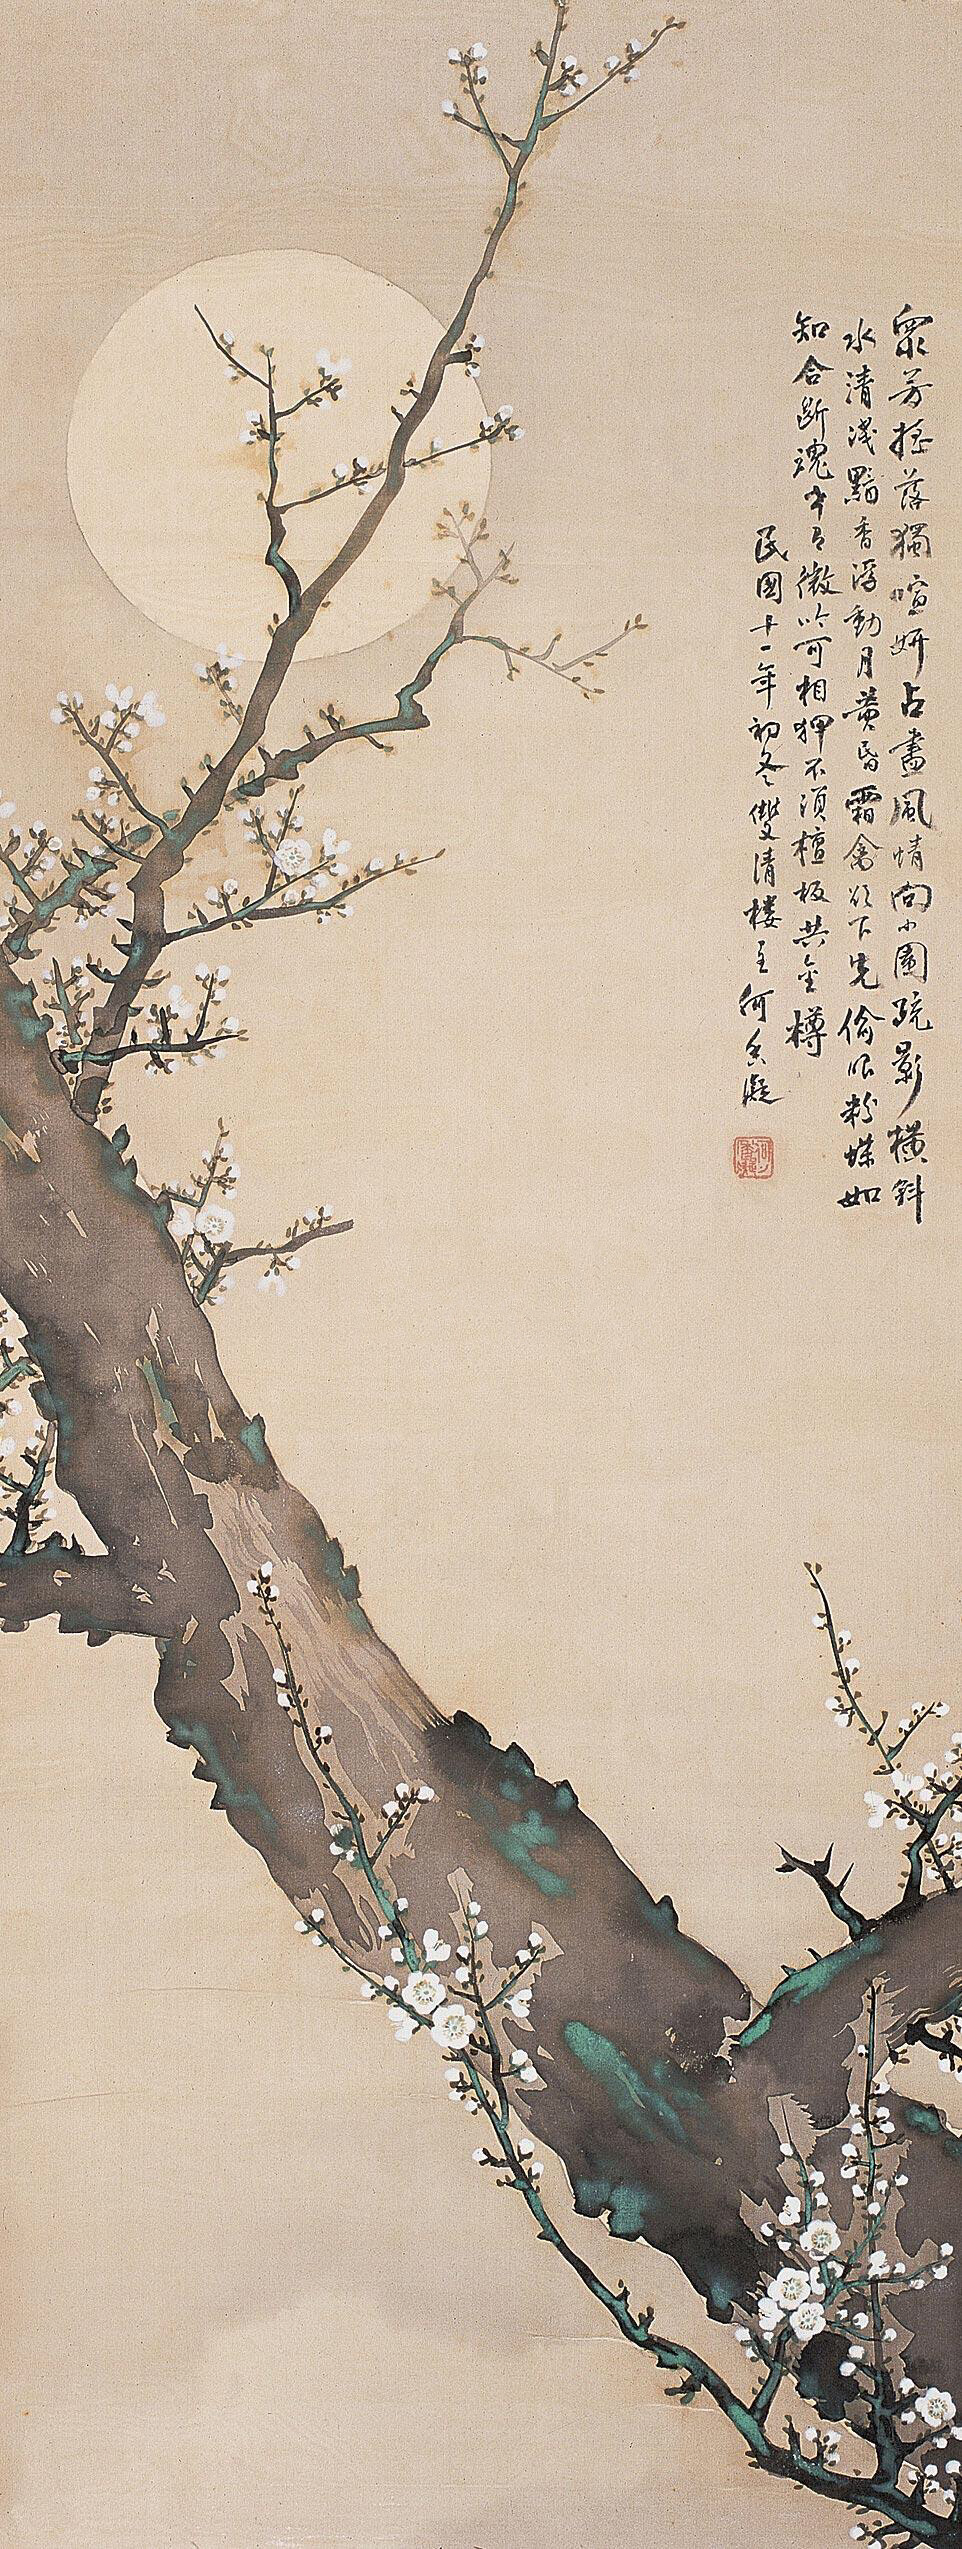 眾芳搖落獨喧妍占盡風情向小園疏影橫斜
水清淺黯香浮動月黃昏霜禽欲下先偷眼粉蝶如
知合斷魂幸有微吟可相狎不須檀板共金樽
民國十一年初冬雙清樓主何香凝